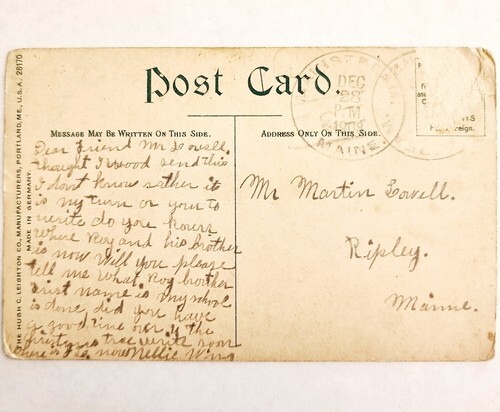 THE HUGH C. LEIGHTON CO., MANUFACTURERS, PORTLAND, ME., U.S.A. 26170
MADE IN GERMANY.
Post Card.
DEC
28
PM
MAINE.
MESSAGE MAY BE WRITTEN ON THIS SIDE.
ADDRESS ONLY ON THIS SIDE.
Dear Friend Mr Lowell.
thought I wood send this
I dont know wther it
is my turn or your to
write do you kown
where Roy and his brother
is now Will you please
tell me what Roy brother
first name is my school
is done did you have
a good time over to the
christmas tree write soon
there is no snow Nellie
Mr Martin Lowell.
Ripley.
Maine.